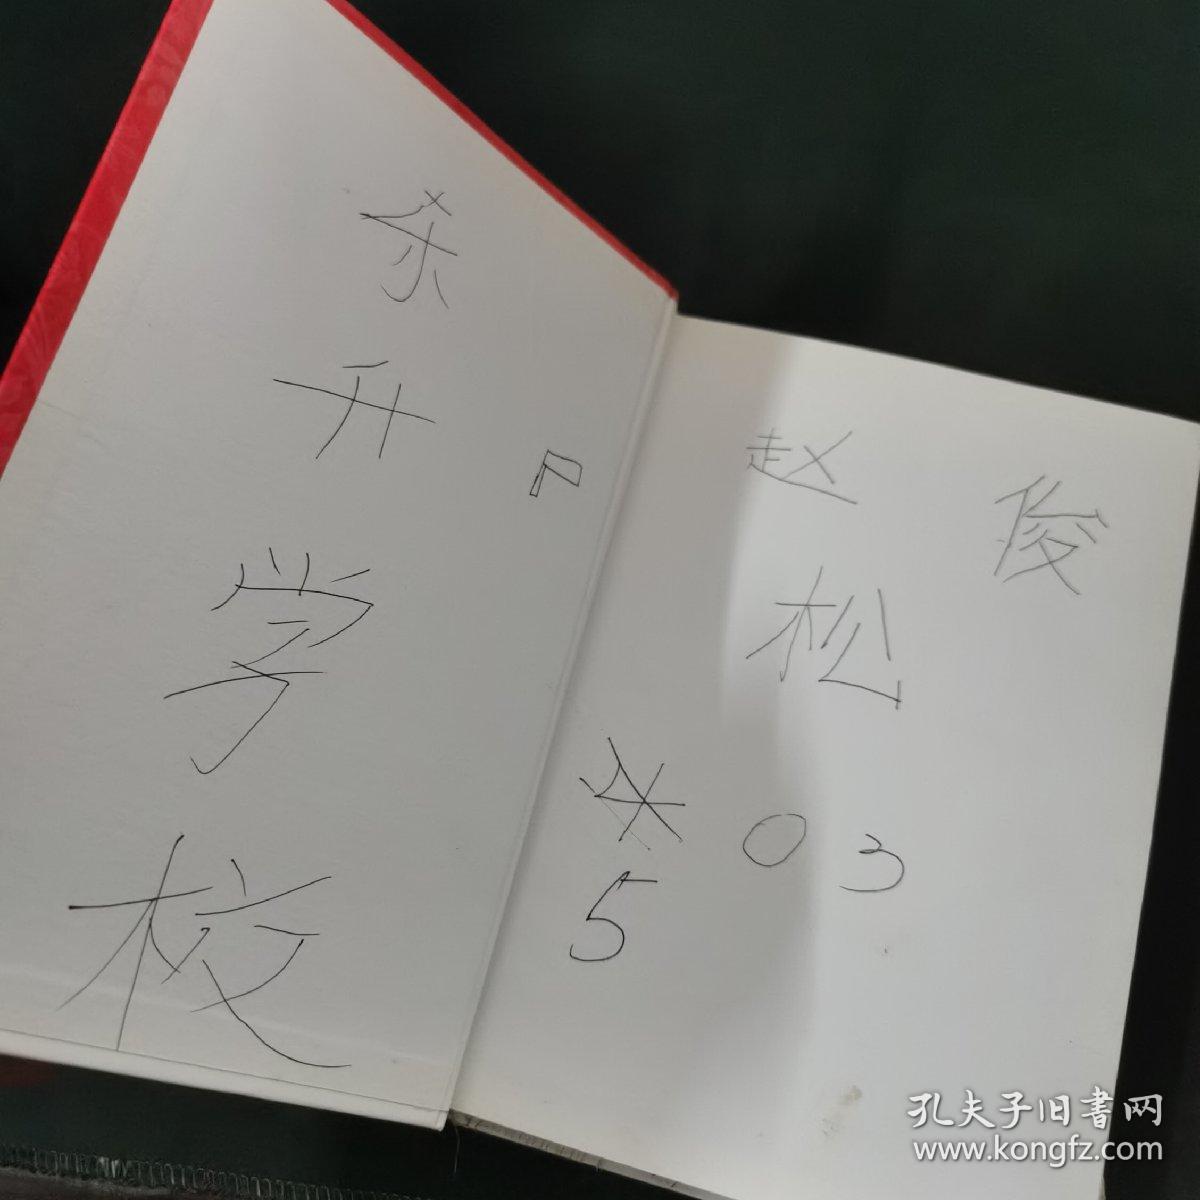 东升学校
赵
俊
松
米
03
5
孔夫子旧書网
www.kongfz.com